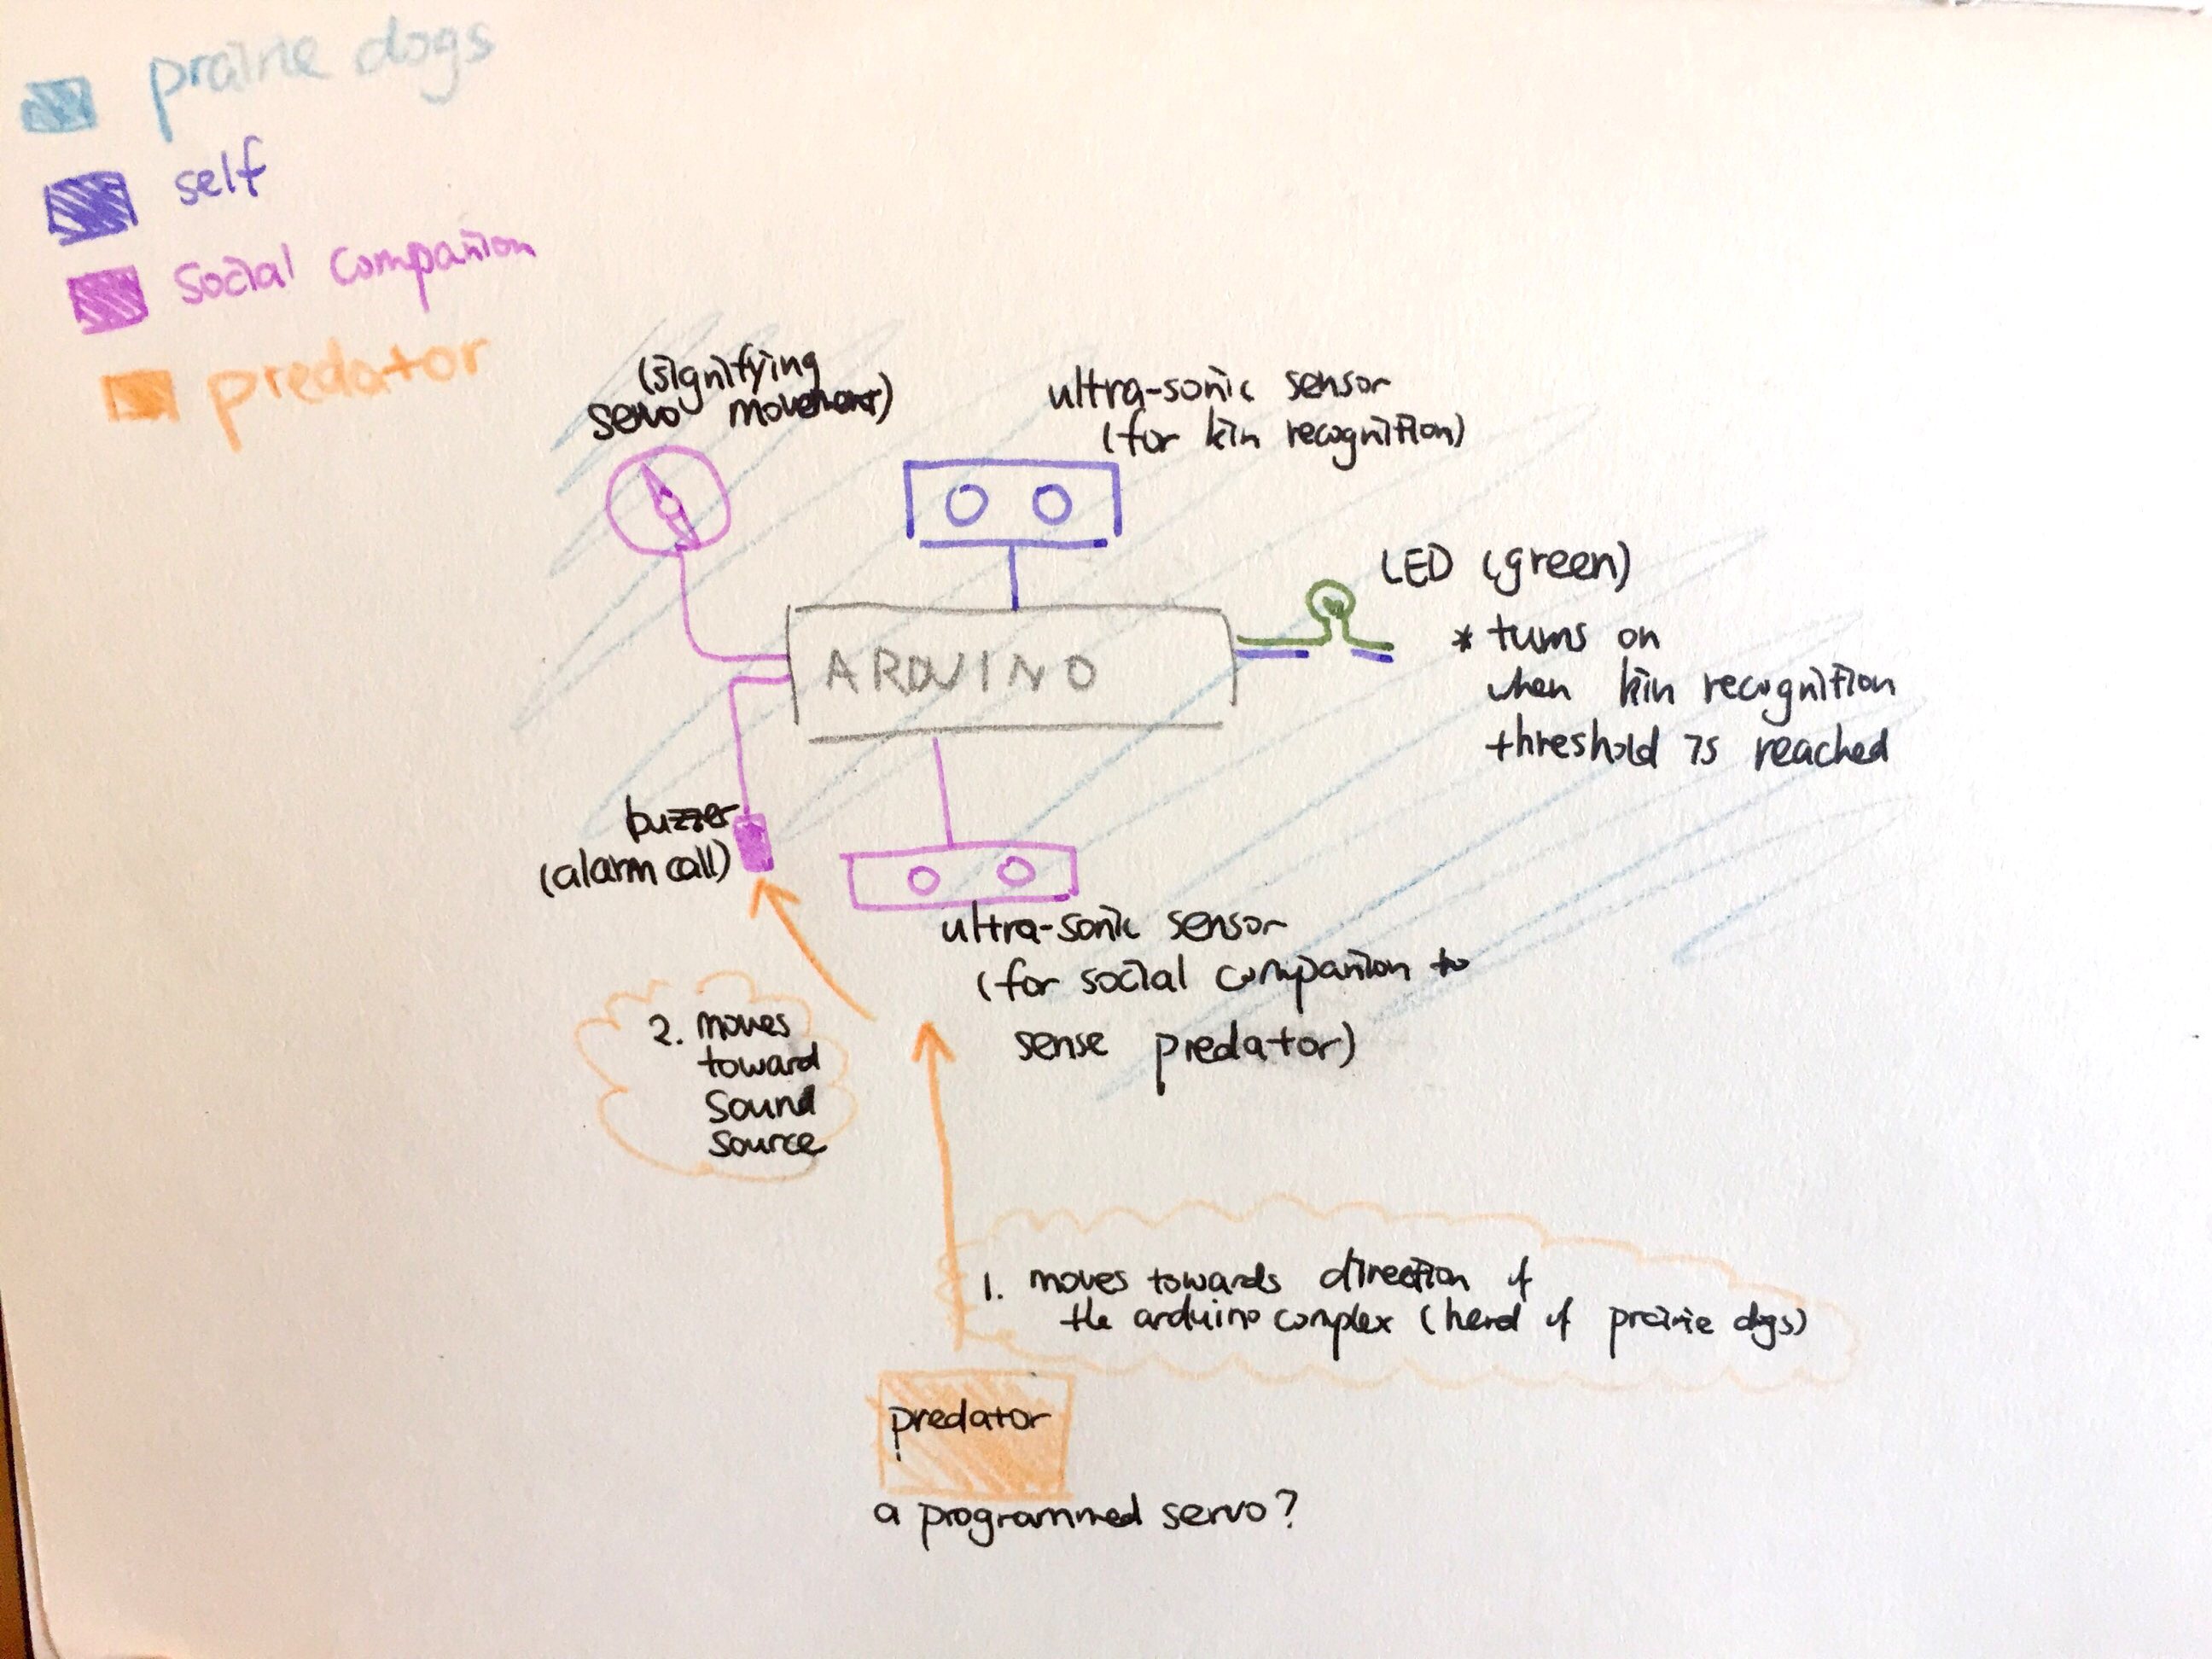 prairie dogs
self
social companion
predator
(signifying
servo movement)
ultra-sonic sensor
(for kin recognition)
LED (green)
* turns on
when kin recognition
threshold is reached
ARDUINO
buzzer
(alarm call)
ultra-sonic sensor
(for social companion to
sense predator)
2. moves
toward
sound
source
1. moves towards direction of
the arduino complex (herd of prairie dogs)
predator
a programmed servo?